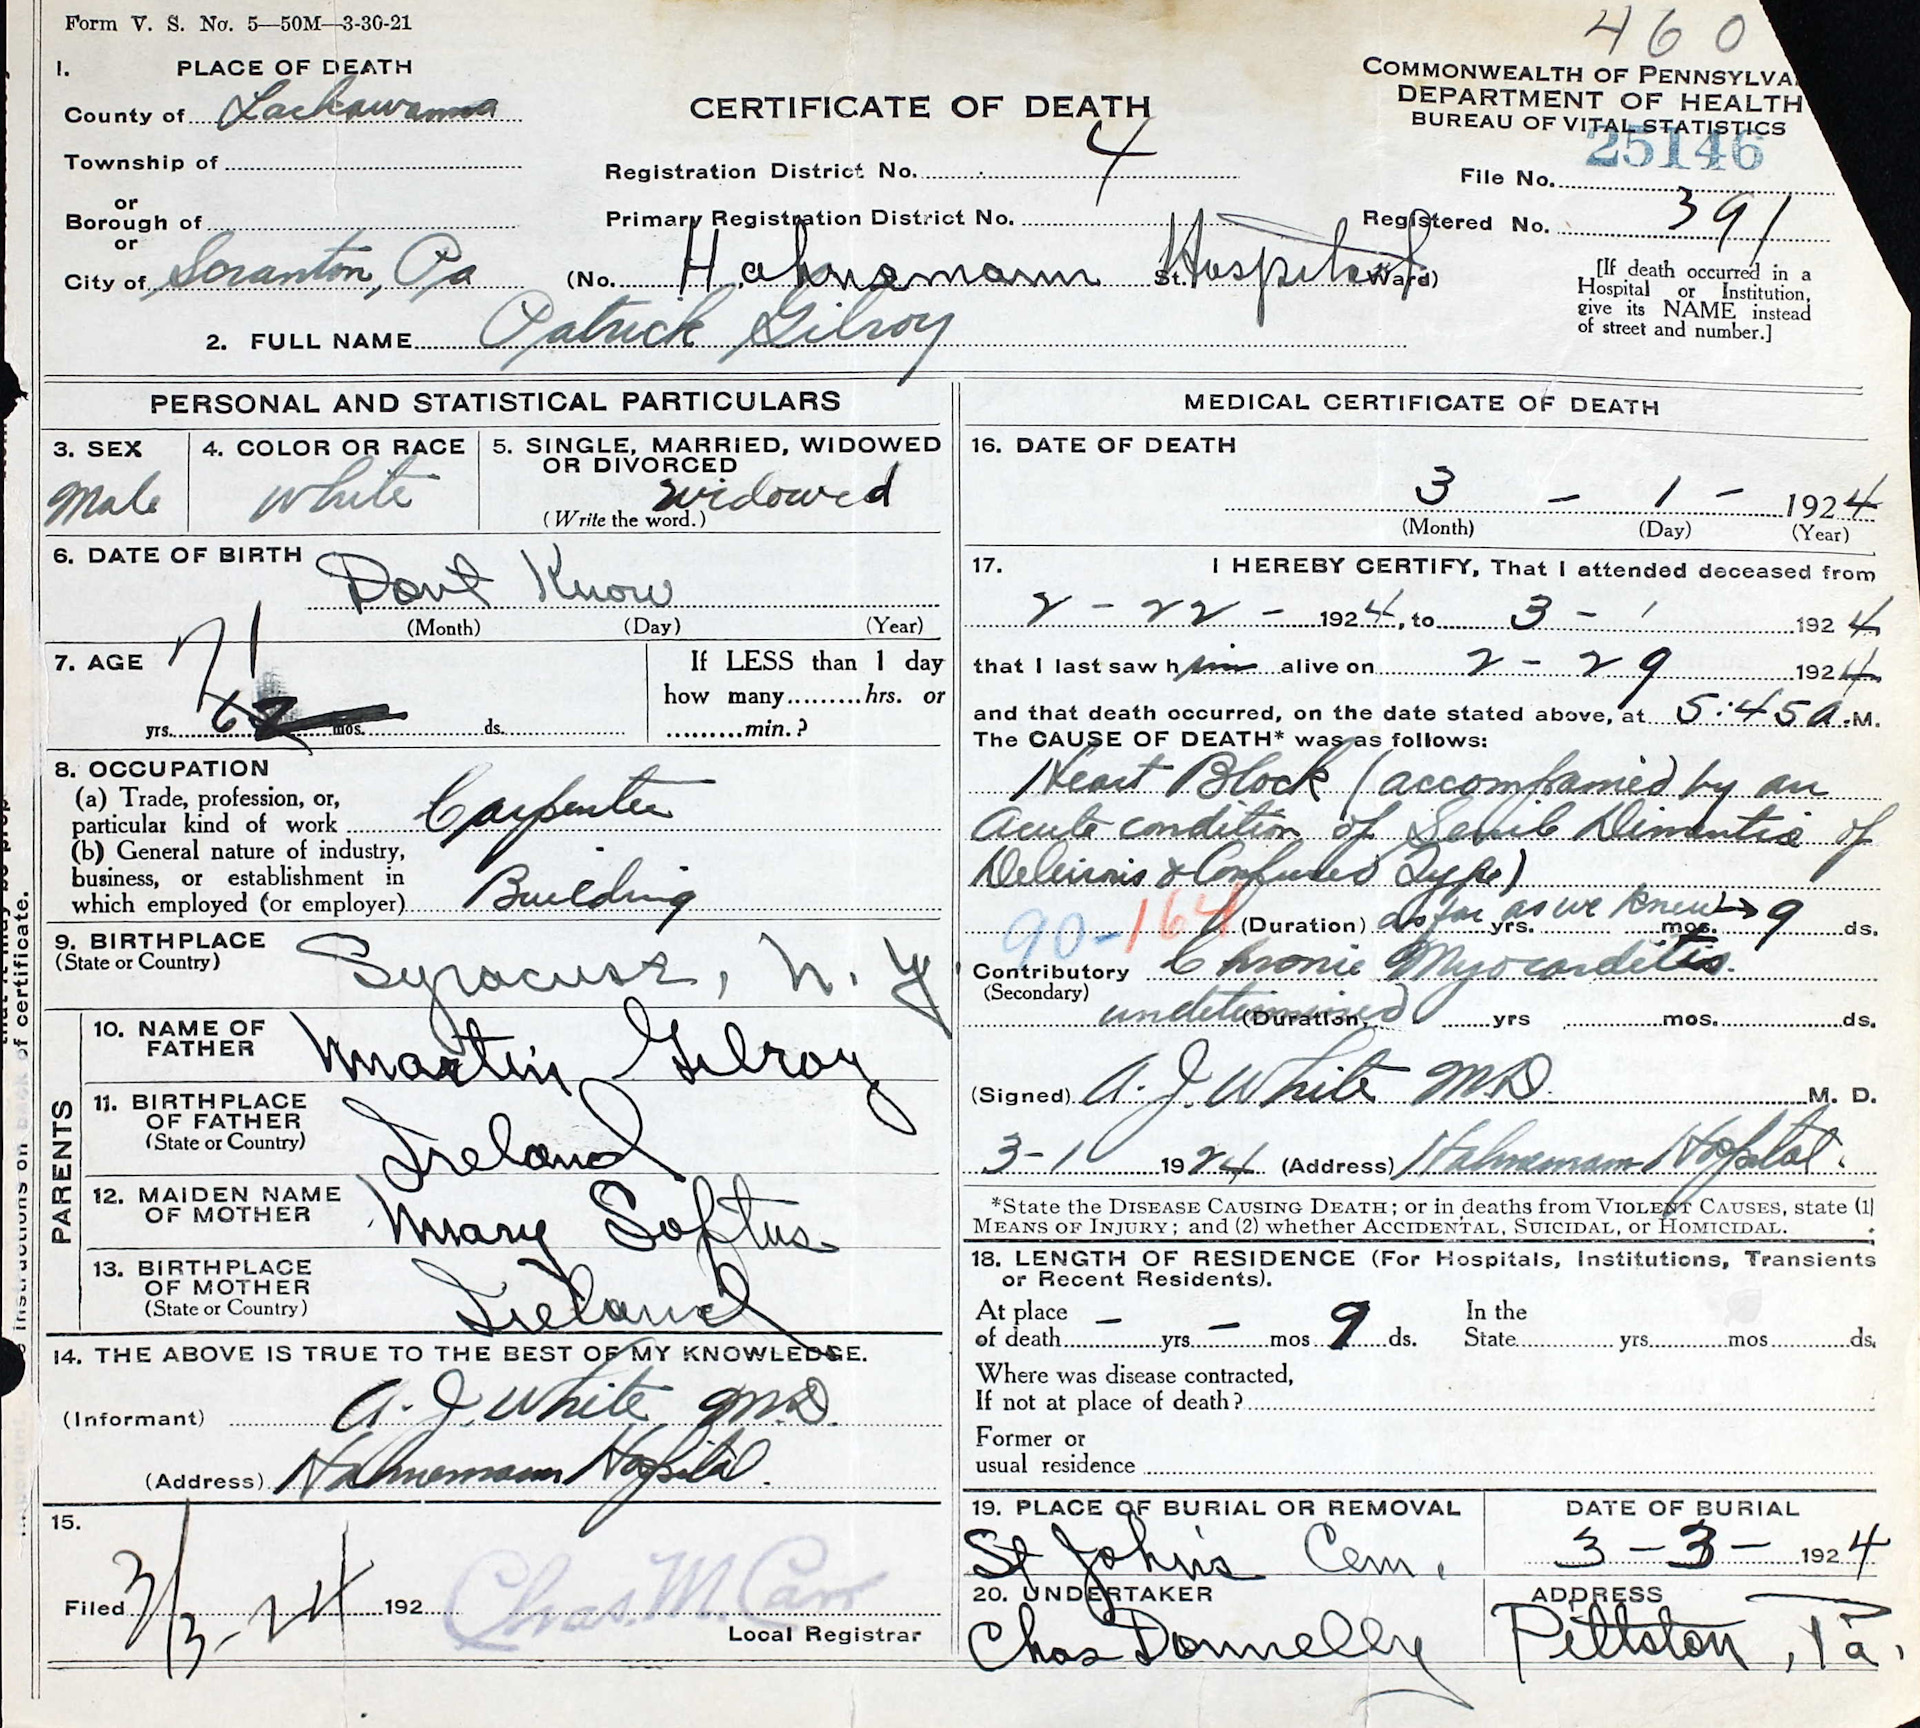 Form V. S. No. 5—50M—3-30-21
460
COMMONWEALTH OF PENNSYLVA
DEPARTMENT OF HEALTH
BUREAU OF VITAL STATISTICS
CERTIFICATE OF DEATH
1. PLACE OF DEATH
County of Lackawanna
Township of
or
Borough of
or
City of Scranton, Pa
Registration District No. 4
Primary Registration District No.
(No. Hahnemann St. Hospital Ward)
25146
File No.
Registered No. 391
[If death occurred in a
Hospital or Institution,
give its NAME instead
of street and number.]
2. FULL NAME Patrick Gilroy
PERSONAL AND STATISTICAL PARTICULARS
3. SEX
Male
4. COLOR OR RACE
White
5. SINGLE, MARRIED, WIDOWED
OR DIVORCED
widowed
(Write the word.)
6. DATE OF BIRTH
Dont Know
(Month) (Day) (Year)
7. AGE
71
62
yrs. mos. ds.
If LESS than 1 day
how many hrs. or
min.?
8. OCCUPATION
(a) Trade, profession, or,
particular kind of work Carpenter
(b) General nature of industry,
business, or establishment in
which employed (or employer) Building
9. BIRTHPLACE
(State or Country)
Syracuse, N. Y
PARENTS
10. NAME OF
FATHER
Martin Gilroy
11. BIRTHPLACE
OF FATHER
(State or Country)
Ireland
12. MAIDEN NAME
OF MOTHER
Mary Loftus
13. BIRTHPLACE
OF MOTHER
(State or Country)
Ireland
14. THE ABOVE IS TRUE TO THE BEST OF MY KNOWLEDGE.
(Informant) A. J. White, M.D.
(Address) Hahnemann Hospital.
15.
Filed 3/3-24 192
Chas. M. Carr
Local Registrar
MEDICAL CERTIFICATE OF DEATH
16. DATE OF DEATH
3 - 1 - 1924
(Month) (Day) (Year)
17. I HEREBY CERTIFY, That I attended deceased from
2 - 22 - 1924, to 3 - 1 1924
that I last saw him alive on 2 - 29 1924
and that death occurred, on the date stated above, at 5:45 A.M.
The CAUSE OF DEATH* was as follows:
Heart Block (accompanied by an
acute condition of Senile Dimentia of
Delirious & Confused Type)
90-164
(Duration) as far as we knew → 9 yrs. mos. ds.
Contributory Chronic Myocarditis.
(Secondary)
undetermined (Duration) yrs mos. ds.
(Signed) A. J. White M.D. M. D.
3-1 1924 (Address) Hahnemann Hospital.
*State the DISEASE CAUSING DEATH; or in deaths from VIOLENT CAUSES, state (1)
MEANS OF INJURY; and (2) whether ACCIDENTAL, SUICIDAL, or HOMICIDAL.
18. LENGTH OF RESIDENCE (For Hospitals, Institutions, Transients
or Recent Residents).
At place
of death - yrs - mos 9 ds.
In the
State yrs mos ds.
Where was disease contracted,
If not at place of death?
Former or
usual residence
19. PLACE OF BURIAL OR REMOVAL
St John's Cem.
DATE OF BURIAL
3 - 3 - 1924
20. UNDERTAKER
Chas Donnelly
ADDRESS
Pittston, Pa.
of certificate.